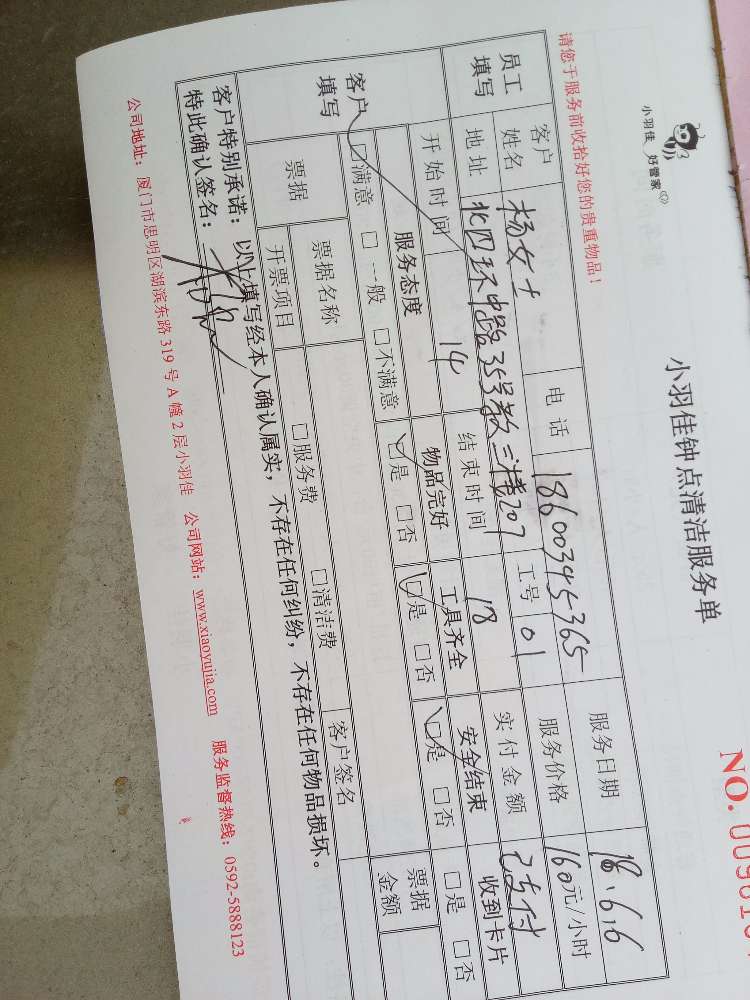 小羽佳 好管家
小羽佳钟点清洁服务单
NO.
请您于服务前收拾好您的贵重物品!
员工填写 客户姓名 杨女士 电话 18600345365 服务日期 18.6.6
地址 北四环中路35号教二楼207 工号 01 服务价格 160元/小时
开始时间 14 结束时间 18 实付金额 已支付
客户填写 服务态度 物品完好 工具齐全 安全结束 收到卡片
□满意 □一般 □不满意 □是 □否 □是 □否 □是 □否 □是 □否
票据 票据名称 □服务费 □清洁费 客户签名 票据金额
开票项目
客户特别承诺:以上填写经本人确认属实,不存在任何纠纷,不存在任何物品损坏。
特此确认签名:
公司地址:厦门市思明区湖滨东路319号A幢2层小羽佳 公司网站:www.xiaoyujia.com 服务监督热线:0592-5888123